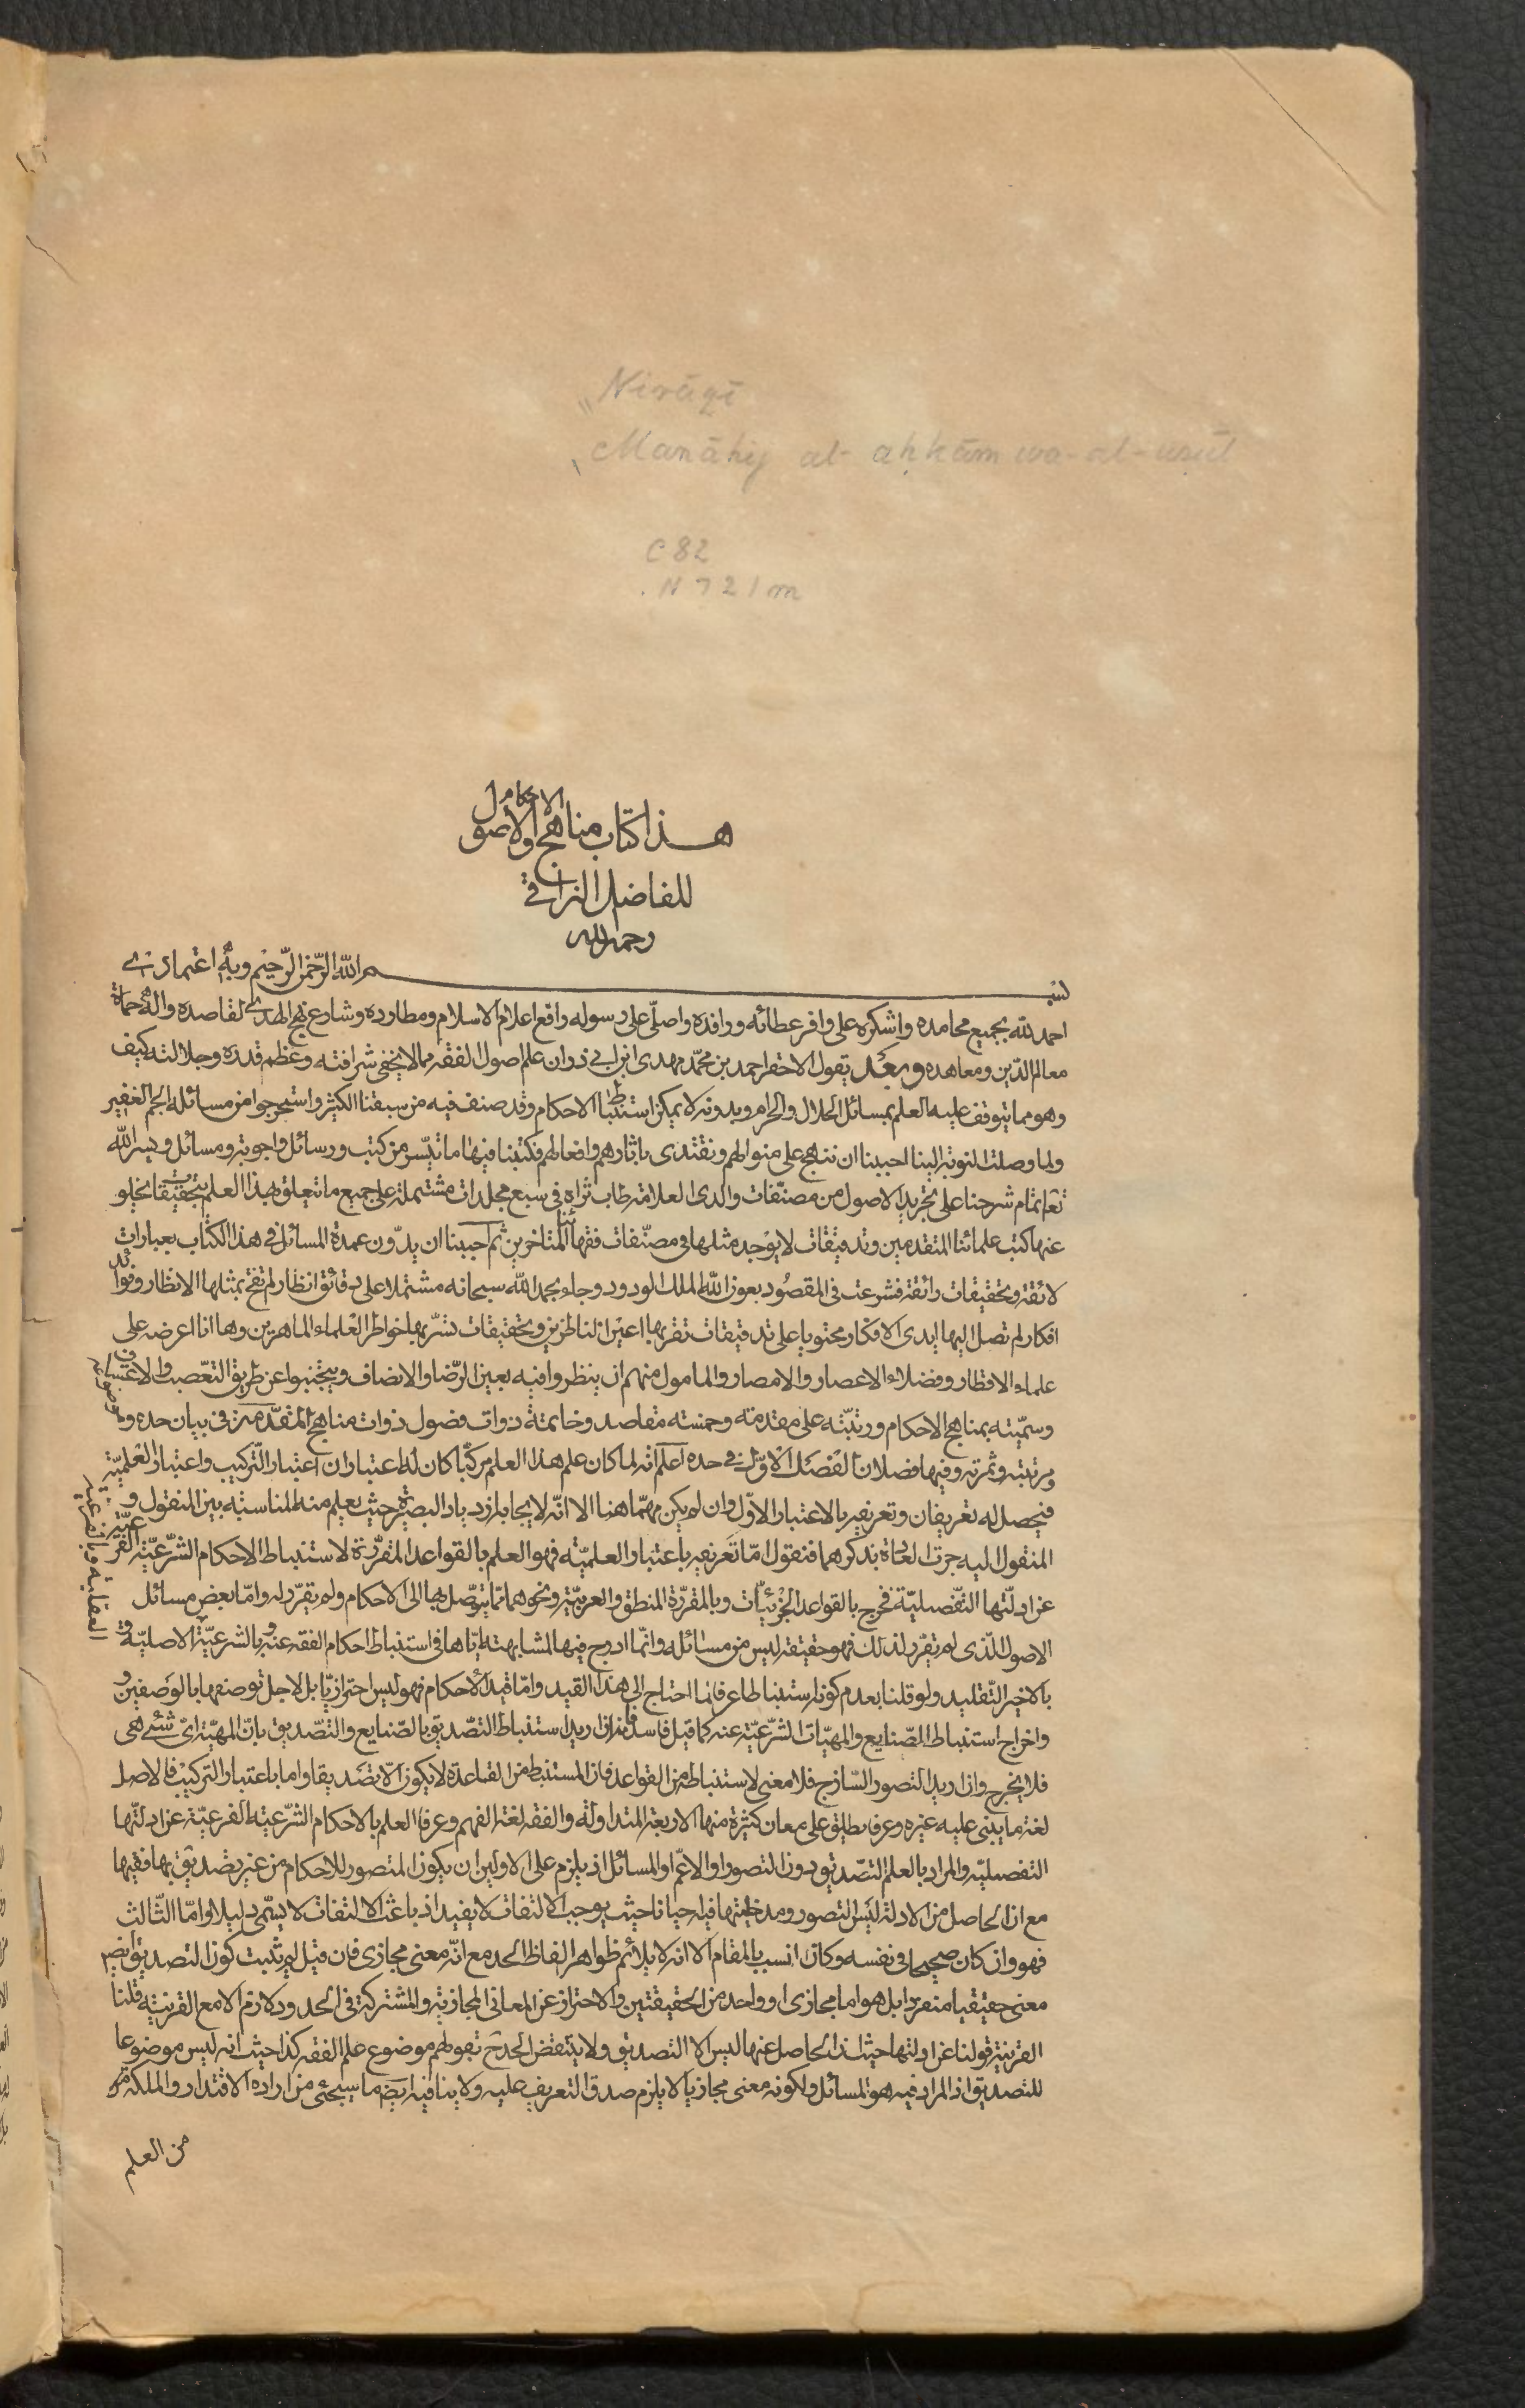 Nirāqī
Manāhij al-aḥkām wa-al-usūl
C82
.N721m
هذا كتاب مناهج الاحكام والاصول
للفاضل النراقي
رحمه الله
بسم الله الرّحمن الرّحيم وبه اعتمادى
احمد لله بجميع محامده واشكره على وافر عطائه ورافده واصلّى على رسوله رافع اعلام الاسلام ومطاوده وشارع نهج الهدى لقاصده واله حماة
معالم الدّين ومعاهده وبعد يقول الاحقر احمد بن محمّد مهدى ابن ابى ذر ان علم اصول الفقه مما لا يخفى شرافته وعظم قدره وجلالته كيف
وهو مما يتوقف عليه العلم بمسائل الحلال والحرام وبدونه لا يمكن استنباط الاحكام وقد صنف فيه من سبقنا الكثير واستخرجوا من مسائله الجم الغفير
ولما وصلت النوبة الينا احببنا ان ننهج على منوالهم ونقتدى باثارهم وافعالهم فكتبنا فيها ما تيسّر من كتب ورسائل واجوبة ومسائل ويسر الله
تعا تمام شرحنا على تجريد الاصول من مصنّفات والدى العلامة طاب ثراه فى سبع مجلدات مشتملة على جميع ما تعلق بهذا العلم بتحقيقات يخلو
عنها كتب علمائنا المتقدمين وتدقيقات لا يوجد مثلها فى مصنّفات فقهائنا المتاخرين ثم احببنا ان يدّون عمدة المسائل فى هذا الكتاب بعبارات
لائقة وتحقيقات رائقة فشرعت فى المقصود بعون الله الملك الودود وجاء بحمد الله سبحانه مشتملا على دقائق انظار لم تفح بمثلها الانظار وفوائد
افكار لم تصل اليها ايدى الافكار محتويا على تدقيقات تقر بها اعين الناظرين وتحقيقات تسّر بها خواطر العلماء الماهرين وها انا اعرضه على
علماء الاقطار وفضلاء الاعصار والامصار والمامول منهم ان ينظروا فيه بعين الرّضا والانصاف ويجتنبوا عن طريق التعصب والاعتساف
وسمّيته بمناهج الاحكام ورتبّته على مقدمة وخمسة مقاصد وخاتمة ذوات فصول ذوات مناهج المقدّمة فى بيان حده وموضوعه
ومرتبته وثمرته وفيها فصلان الفصل الاوّل فى حده اعلم انه لما كان علم هذا العلم مركّبا كان له اعتباران اعتبار التّركيب واعتبار العلميّة
فيحصل له تعريفان وتعريفه بالاعتبار الاوّل وان لم يكن مهمّا هنا الا انّه لايجابه ازدياد البصيرة حيث يعلم منه المناسبة بين المنقول و
المنقول اليه جرت العادة بذكرهما فنقول امّا تعريفه باعتبار العلميّة فهو العلم بالقواعد المقرّرة لاستنباط الاحكام الشّرعيّة الفرعيّة
عن ادلّتها التّفصيليّة فخرج بالقواعد الجزئيّات وبالمقرّرة المنطق والعربيّة ونحوهما ممّا يتوصّل بها الى الاحكام ولم يقرّر له وامّا بعض مسائل
الاصول الّذى لم تقرّر لذلك فهو حقيقة ليس من مسائله وانّما ادرج فيها لمشابهته ايّاها فى استنباط احكام الفقه عنه وبالشرعيّة الاصليّة و
العقلية وبالفرعية
بالاخير التّقليد ولو قلنا بعدم كونه استنباطا عرفا لما احتاج الى هذا القيد وامّا قيد الاحكام فهو ليس احترازيّا بل لاجل توصيفها بالوصفين و
واخراج استنباط الصّنايع والمهيّات الشّرعيّة عنه كما قيل فاسد فانه ان اريد استنباط التّصديق بالصّنايع والتّصديق بانّ المهيّة اىّ شئ هى
فلا يخرج وان اريد التصور السّازج فلا معنى لاستنباطه من القواعد فان المستنبط من القاعدة لا يكون الّا تصديقا واما باعتبار التركيب فالاصل
لغة ما يبنى عليه غيره وعرفا يطلق على معان كثيرة منها الاربعة المتداولة والفقه لغة الفهم وعرفا العلم بالاحكام الشّرعيّة الفرعيّة عن ادلّتها
التفصليّة والمراد بالعلم التّصديق دون التصور او الاعّم او المسائل اذ يلزم على الاولين ان يكون المتصور للاحكام من غير تصديق بها فقيها
مع ان الحاصل من الادلة ليس التصور ومدخليتها فيه احيانا حيث يوجب الالتفات لا يفيد اذ باعث الالتفات لا يسّمى دليلا وامّا الثّالث
فهو وان كان صحيحا فى نفسه وكان انسب بالمقام الّا انه لا يلائم ظواهر الفاظ الحد مع انّه معنى مجازى فان قيل لم يثبت كون التصديق ايضا
معنى حقيقيا منفردا بل هو اما مجازى او واحد من الحقيقتين والاحتراز عن المعانى المجازية والمشتركة فى الحدود لازم الا مع القرينة قلنا
القرينة قولنا عن ادلتها حيث ان الحاصل عنها ليس الا التصديق ولا ينتقض الحد ح بقولهم موضوع علم الفقه كذا حيث انه ليس موضوعا
للتصديق اذ المراد فيه هو المسائل ولكونه معنى مجازيا لا يلزم صدق التعريف عليه ولا ينافيه ايضا ما سيجئ من ارادة الاقتدار والملكة
من العلم